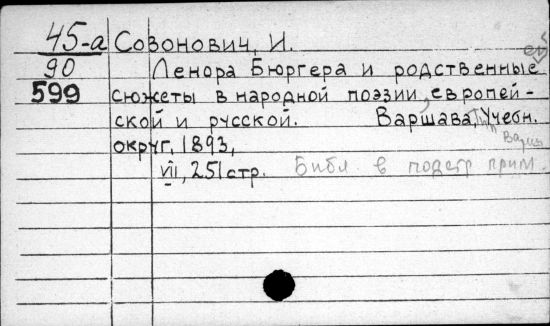 45-а Созонович, И.
90 Ленора Бюргера и родственные
599 сюжеты в народной поэзии, европей-
ской и русской. Варшава, Тип. Учебн.
округ, 1893,
VII, 251 стр. Библ в подстр прим.